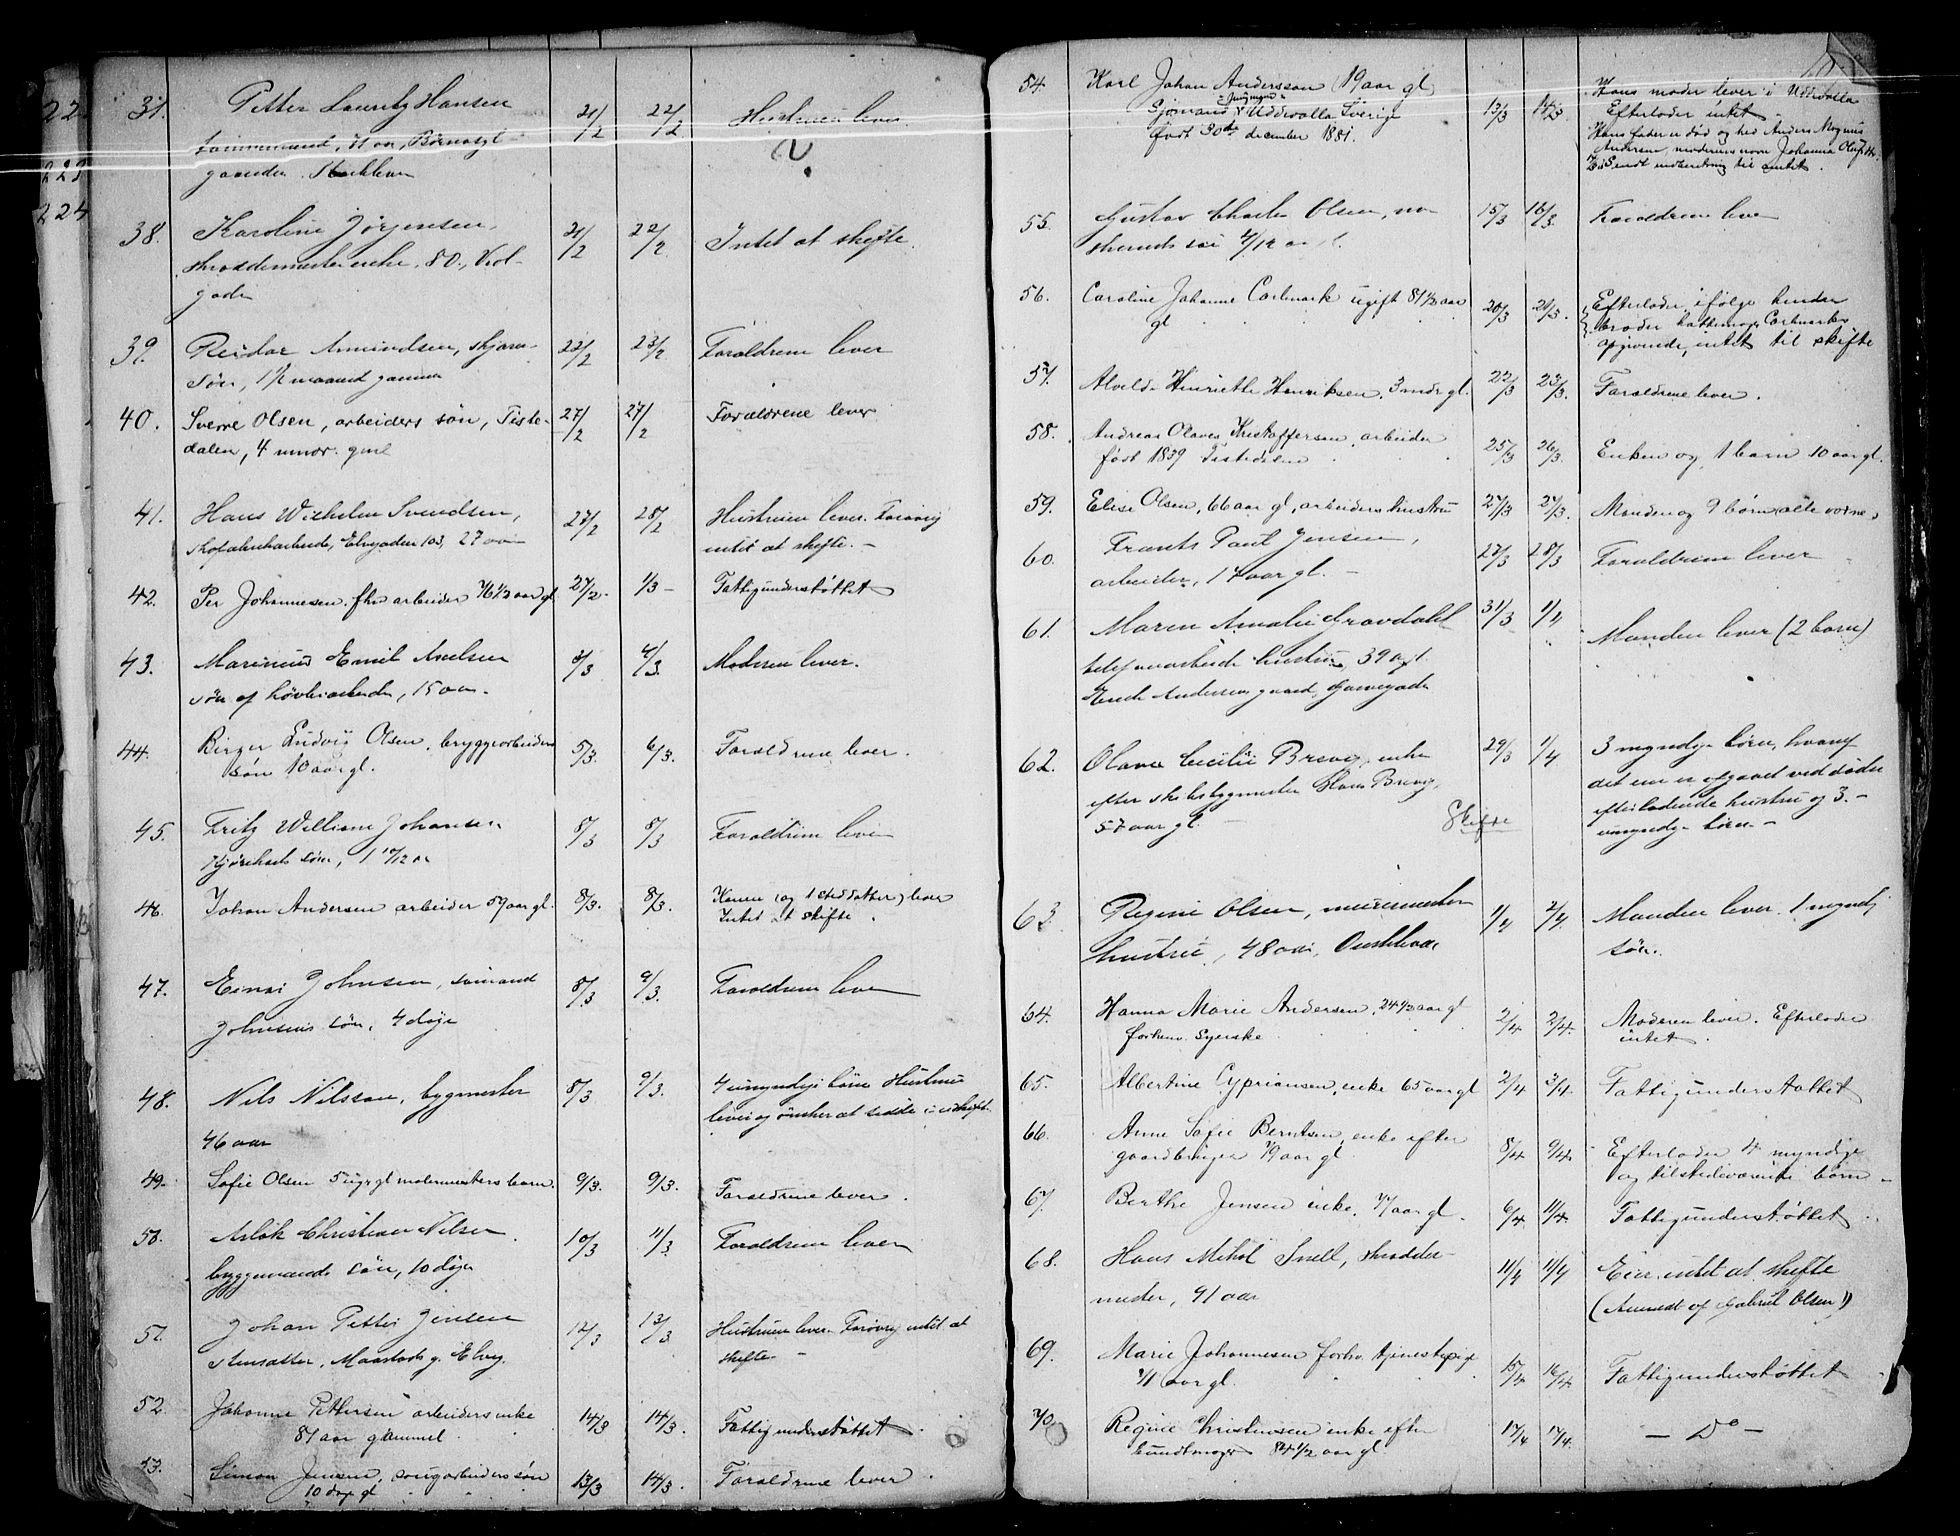 22
223
224
37. Petter Lauritz Hansen 21/2 22/2 Hustruen lever
38. Karoline Jørgensen, 21/2 22/2 Intet at skifte.
skræddermester enke, 80, Vold-
gaden
39. Reidar Amundsen, 22/2 23/2 Forældrene lever
søn, 1½ maaned gammel
40. Sverre Olsen, arbeiders søn, Tiste- 27/2 27/2 Forældrene lever
dalen, 4 mndr. gml
41. Hans Wilhelm Svendsen, 27/2 28/2 Hustruen lever. Forøvrig
Elvegaden 103, 27 aar intet at skifte. -
42. Per Johannesen. fhv arbeider 76½ aar gl 27/2 - 1/3 - Fattigunderstøttet
43. Marinius Emil Axelsen 3/3 4/3 Moderen lever.
søn af høvleriarbeider, 15 aar.
44. Birger Ludvig Olsen, bryggearbeiders 5/3. 6/3. Forældrene lever.
søn 10 aar gl.
45. Fritz William Johansen 8/3 8/3 Forældrene lever
søn, 1 10/12 aar
46. Johan Andersen arbeider 59 aar gl. 8/3. 8/3. Konen (og 1 steddatter) lever
Intet at skifte.
47. Einar Johnsen, sømand 8/3 9/3. Forældrene lever
Johnsens søn, 4 døge
48. Nils Nilsson, bygmester 8/3 9/3. 4 umyndige børn Hustruen
lever og ønsker at sidde i uskift.
46 aar
49. Sofie Olsen 5 ugr gl malermesters barn. 9/3. 9/3. Forældrene lever.
50. Aslak Christian Nilsen 10/3 11/3 Forældrene lever
byggemands søn, 10 døge
51. Johan Petter Jensen 12/3 13/3 Hustruen lever. Forøvrig intet at
Stensætter, skifte -
52. Johanne Pettersen arbeiders enke 14/3 14/3. Fattigunderstøttet.
87 aar gammel.
53. Simon Jensen, saugarbeiders søn 13/3 14/3. Forældrene lever.
10 dage gl
54. Karl Johan Andersson 19 aar gl 13/3 14/3 Hans moder lever i Uddevalla
Sjømand Uddevalla Sverige Efterlader intet -
født 30te december 1881. Hans fader er død og hed Anders Magnus
Andersen, moderens navn Johanna
Sendt indberetning til amtet.
55. Gustav Charles Olsen, 15/3 16/3. Forældrene lever
søn 7/12 aar gl.
56. Caroline Johanne Carlmark ugift 81½ aar 20/3 21/3. Efterlader ifølge hendes
gl broder hattemager Carlmarks
opgivende, intet til skifte
57. Alvilde Henriette Henriksen. 3 mdr gl. 22/3 23/3. Forældrene lever.
58. Andreas Olaves Kristoffersen, arbeider 25/3 26/3. Enken og 1 barn 10 aar gl.
født 1839 Tistedalen
59. Elise Olsen, 66 aar gl, arbeiders hustru 27/3 27/3. Manden og 9 børn, alle voxne.
60. Frants Paul Jensen, 27/3 28/3 Forældrene lever
arbeider, 17 aar gl. -
61. Maren Amalie Gravdahl 31/3 1/4 Manden lever (2 børn)
hustru, 39 aar gl.
62. Olava Cecilie Brevig, enke 29/3 1/4 3 myndige børn, hvoraf
efter skibsbygmester Hans Brevig, det ene er afgaaet ved døden
57 aar gl. - Skifte efterladende hustru og 3 -
umyndige børn. -
63. Regine Olsen, muremester 1/4 2/4. Manden lever. 1 myndig
hustru, 48 aar, søn.
64. Hanna Marie Andersen, 24½ aar gl 2/4 2/4. Moderen lever. Efterlader
forhenv. syerske intet.
65. Albertine Cypriansen, enke 65 aar gl 2/4 3/4. Fattigunderstøttet
66. Anne Sofie Berntsen, enke efter 8/4 9/4. Efterlader 4 myndige
gaardbruger 79 aar gl. og tilstedeværende børn -
67. Berthe Jensen enke. 77 aar gl. 6/4 11/4 Fattigunderstøttet.
68. Hans Mikal Snell, skrædder- 11/4 11/4 Eier intet at skifte
mester, 91 aar (Anmeldt af Gabriel Olsen)
69. Marie Johannesen forhv. tjenestepige 15/4 16/4 Fattigunderstøttet
71 aar gl.
70 Regine Christensen enke efter 17/4 17/4. - Do -
bundtmager 84½ aar gl